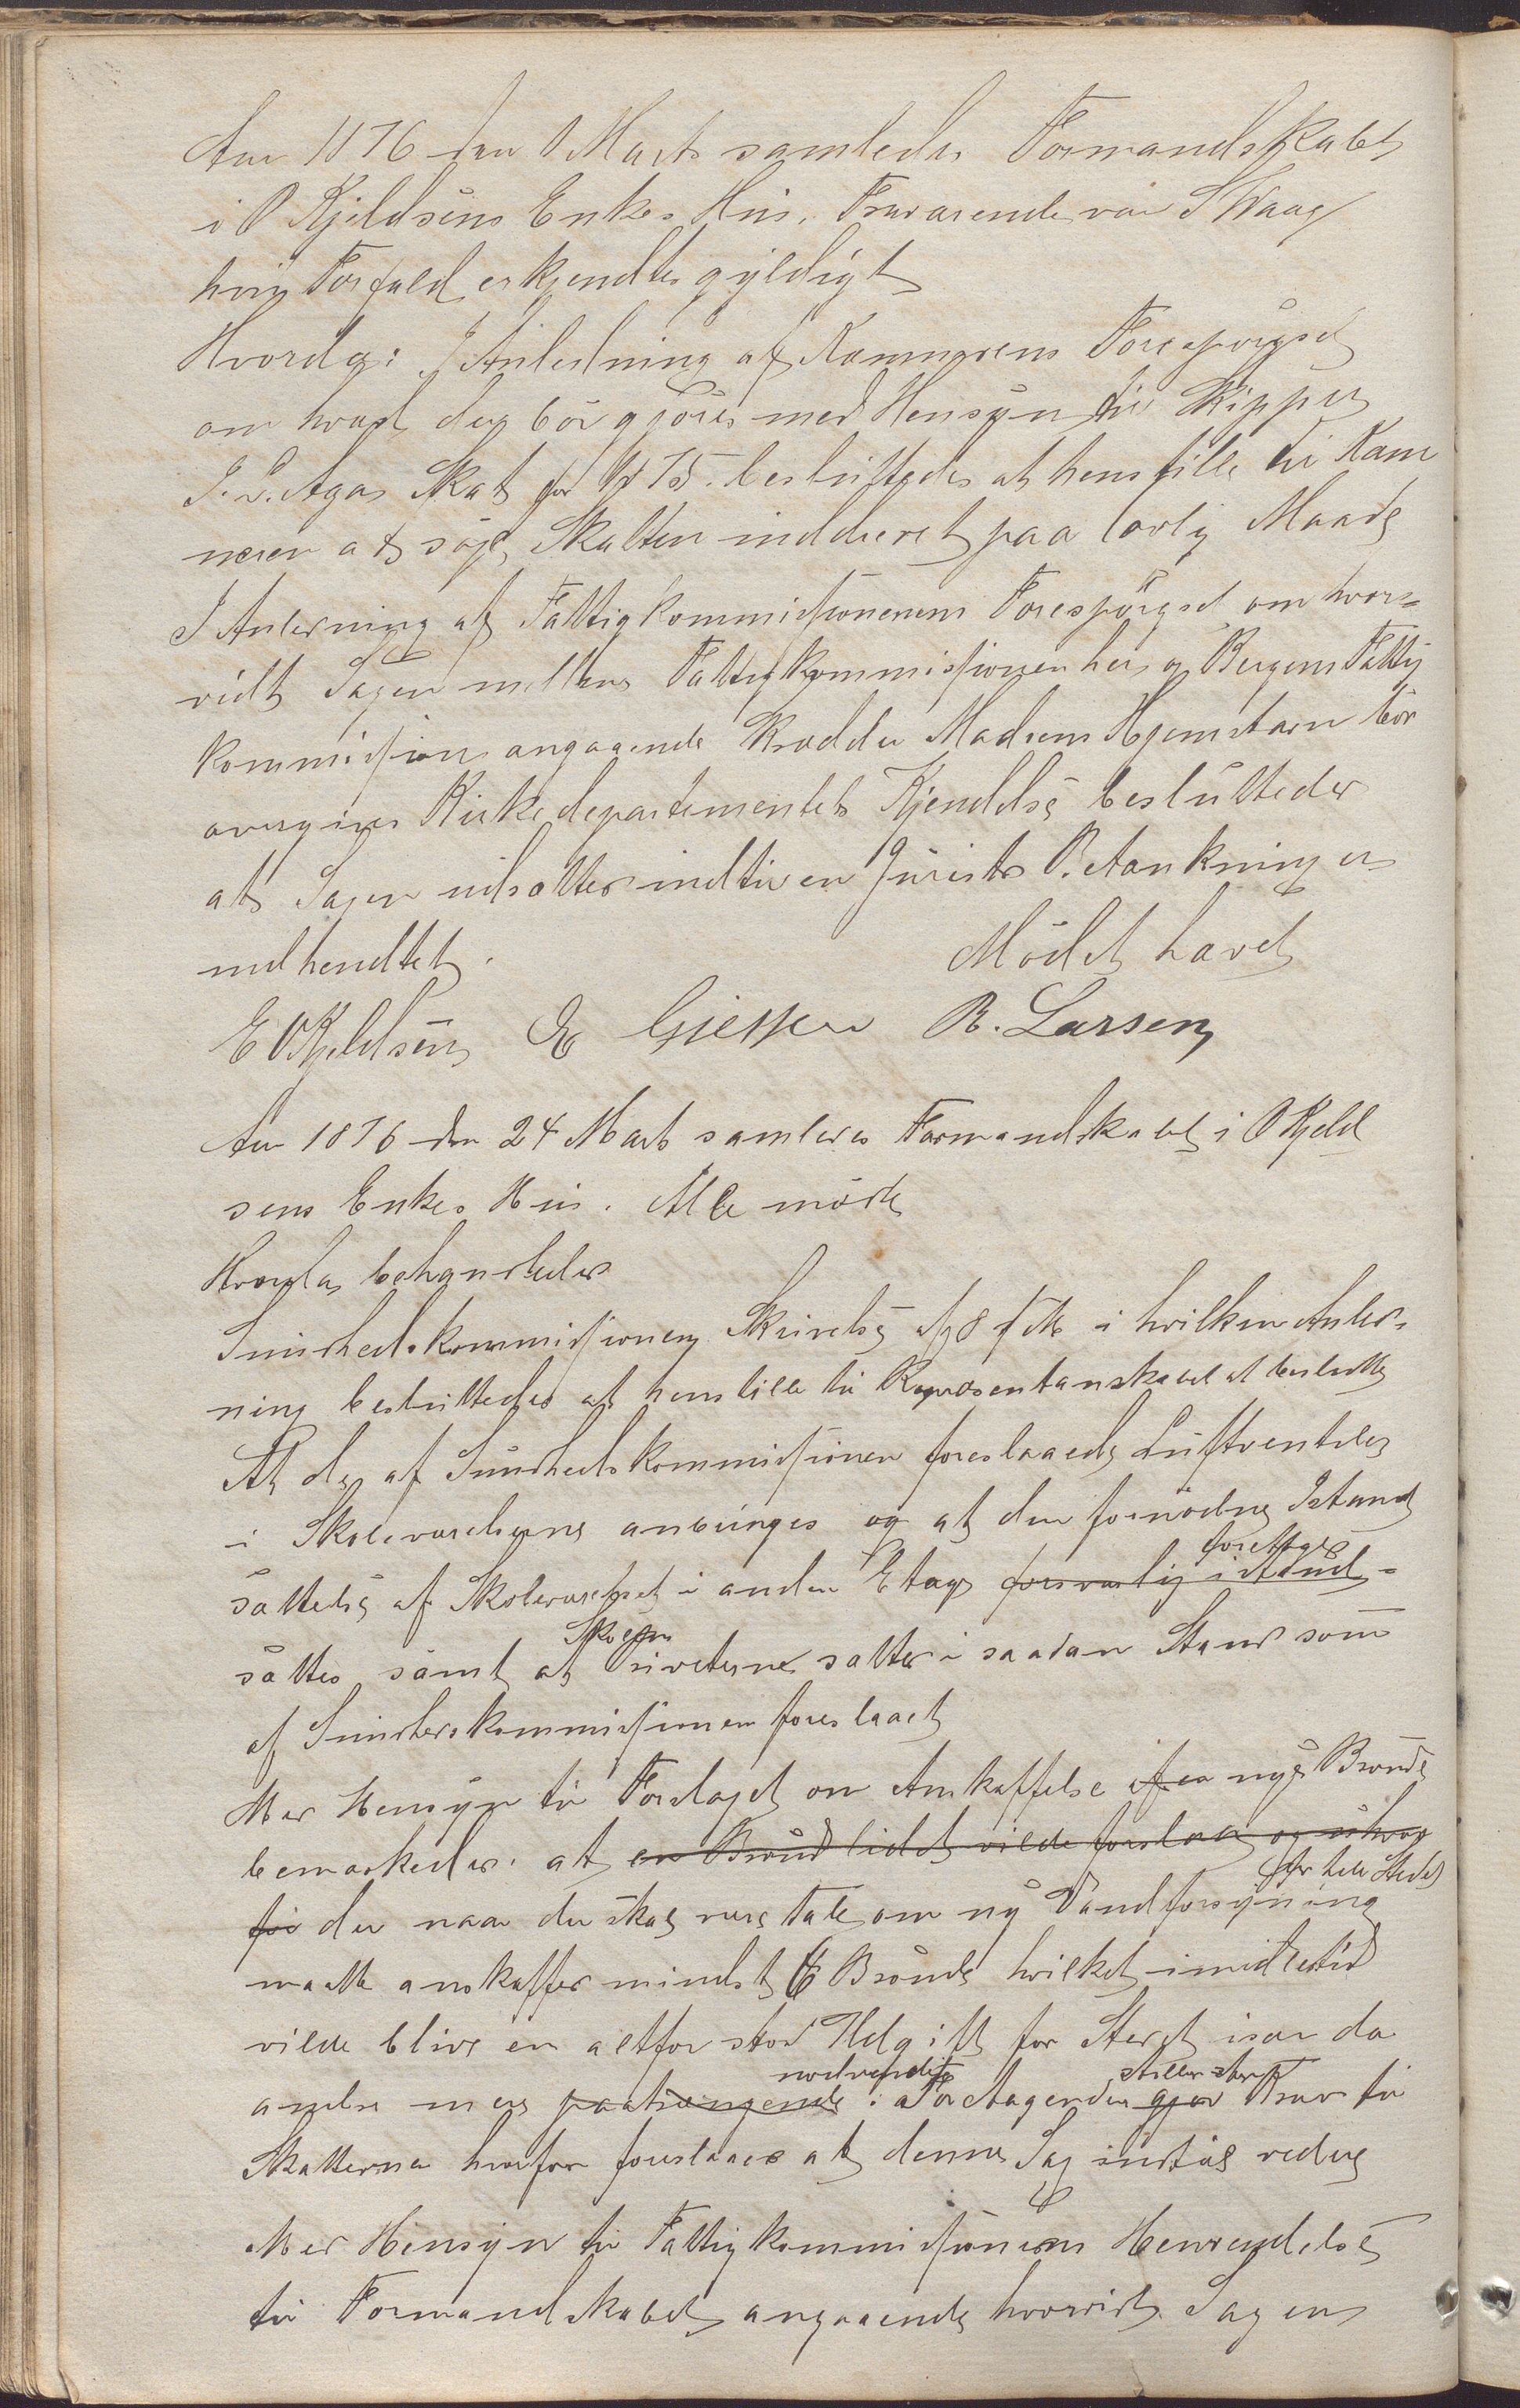 Aar 1876 den 1 Marts samledes Formandskabet
i O Kjeldsens Enkes Hus. Fraværende var S Waage
hvis Forfald erkjendtes gyldigt
Hvorda: I Anledning af Kæmnerens Forespørgsel
om hvad der bør gjøres med Hensyn til Skipper
J. L. Agas Skat for 1875. besluttedes at henstille til Kæm
neren at søge Skatten inddreved paa lovlig Maade
I Anledning af Fattigkommissionens Forespørgsel om hvor-
vidt Sagen mellem Fattigkommissionen her og Bergens Fattig
kommission angaaende Skrædder Madsens Hjemstavn bør
overgives Kirkedepartementets Kjendelse besluttedes
at Sagen udsættes indtil en Jurists Betænkning er
indhendtet. Mødet hævet
E O Kjeldsen E Gjessen R. Larsen
Aar 1876 den 24 Marts samledes Formandskabet i O Kjeld
sens Enkes Hus. Alle mødte
Hvorda behandledes
Sundhedskommissionens Skrivelse af 8 ds i hvilken Anled-
ning besluttedes at henstille til Repræsentanskabet at beslutte
At de af Sundhedskommissionen foreslaaede Luftventiler
i Skoleværelserne anbringes og at den fornødne Istand
sættelse af Skoleværelset i anden Etage forsvarlig istand- foretages
sættes samt at Skolens Priveterne sættes i saadan Stand som
af Sundhedskommissionen foreslaaet
Med Hensyn til Forslaget om Anskaffelse af en nye Brønde
bemærkedes at en Brønd lidet vilde forslaa og
for der naar der skal være Tale om ny Vandforsyning for hele Stedet
maatte anskaffes mindst 6 Brønde hvilket imidlertid
vilde blive en altfor stor Udgift for Stedet især da
andre mere paatrængende nødvendige Foretagender gjør stiller store Krav til
Skatterne hvorfor foreslaaes at denne Sag indtil videre
Med Hensyn til Fattigkommissionens Henvendelse
til Formandskabet angaaende hvorvidt Sagen